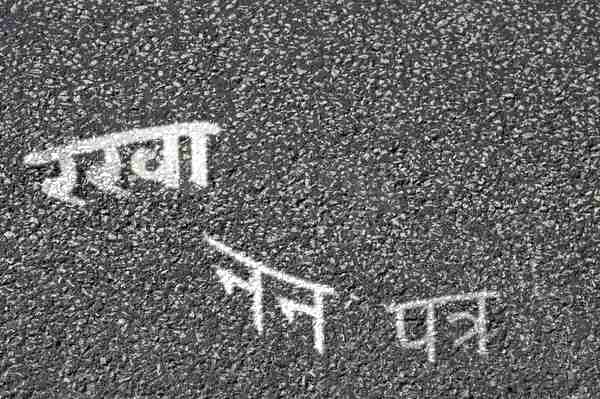 रखा
नेन पत्र